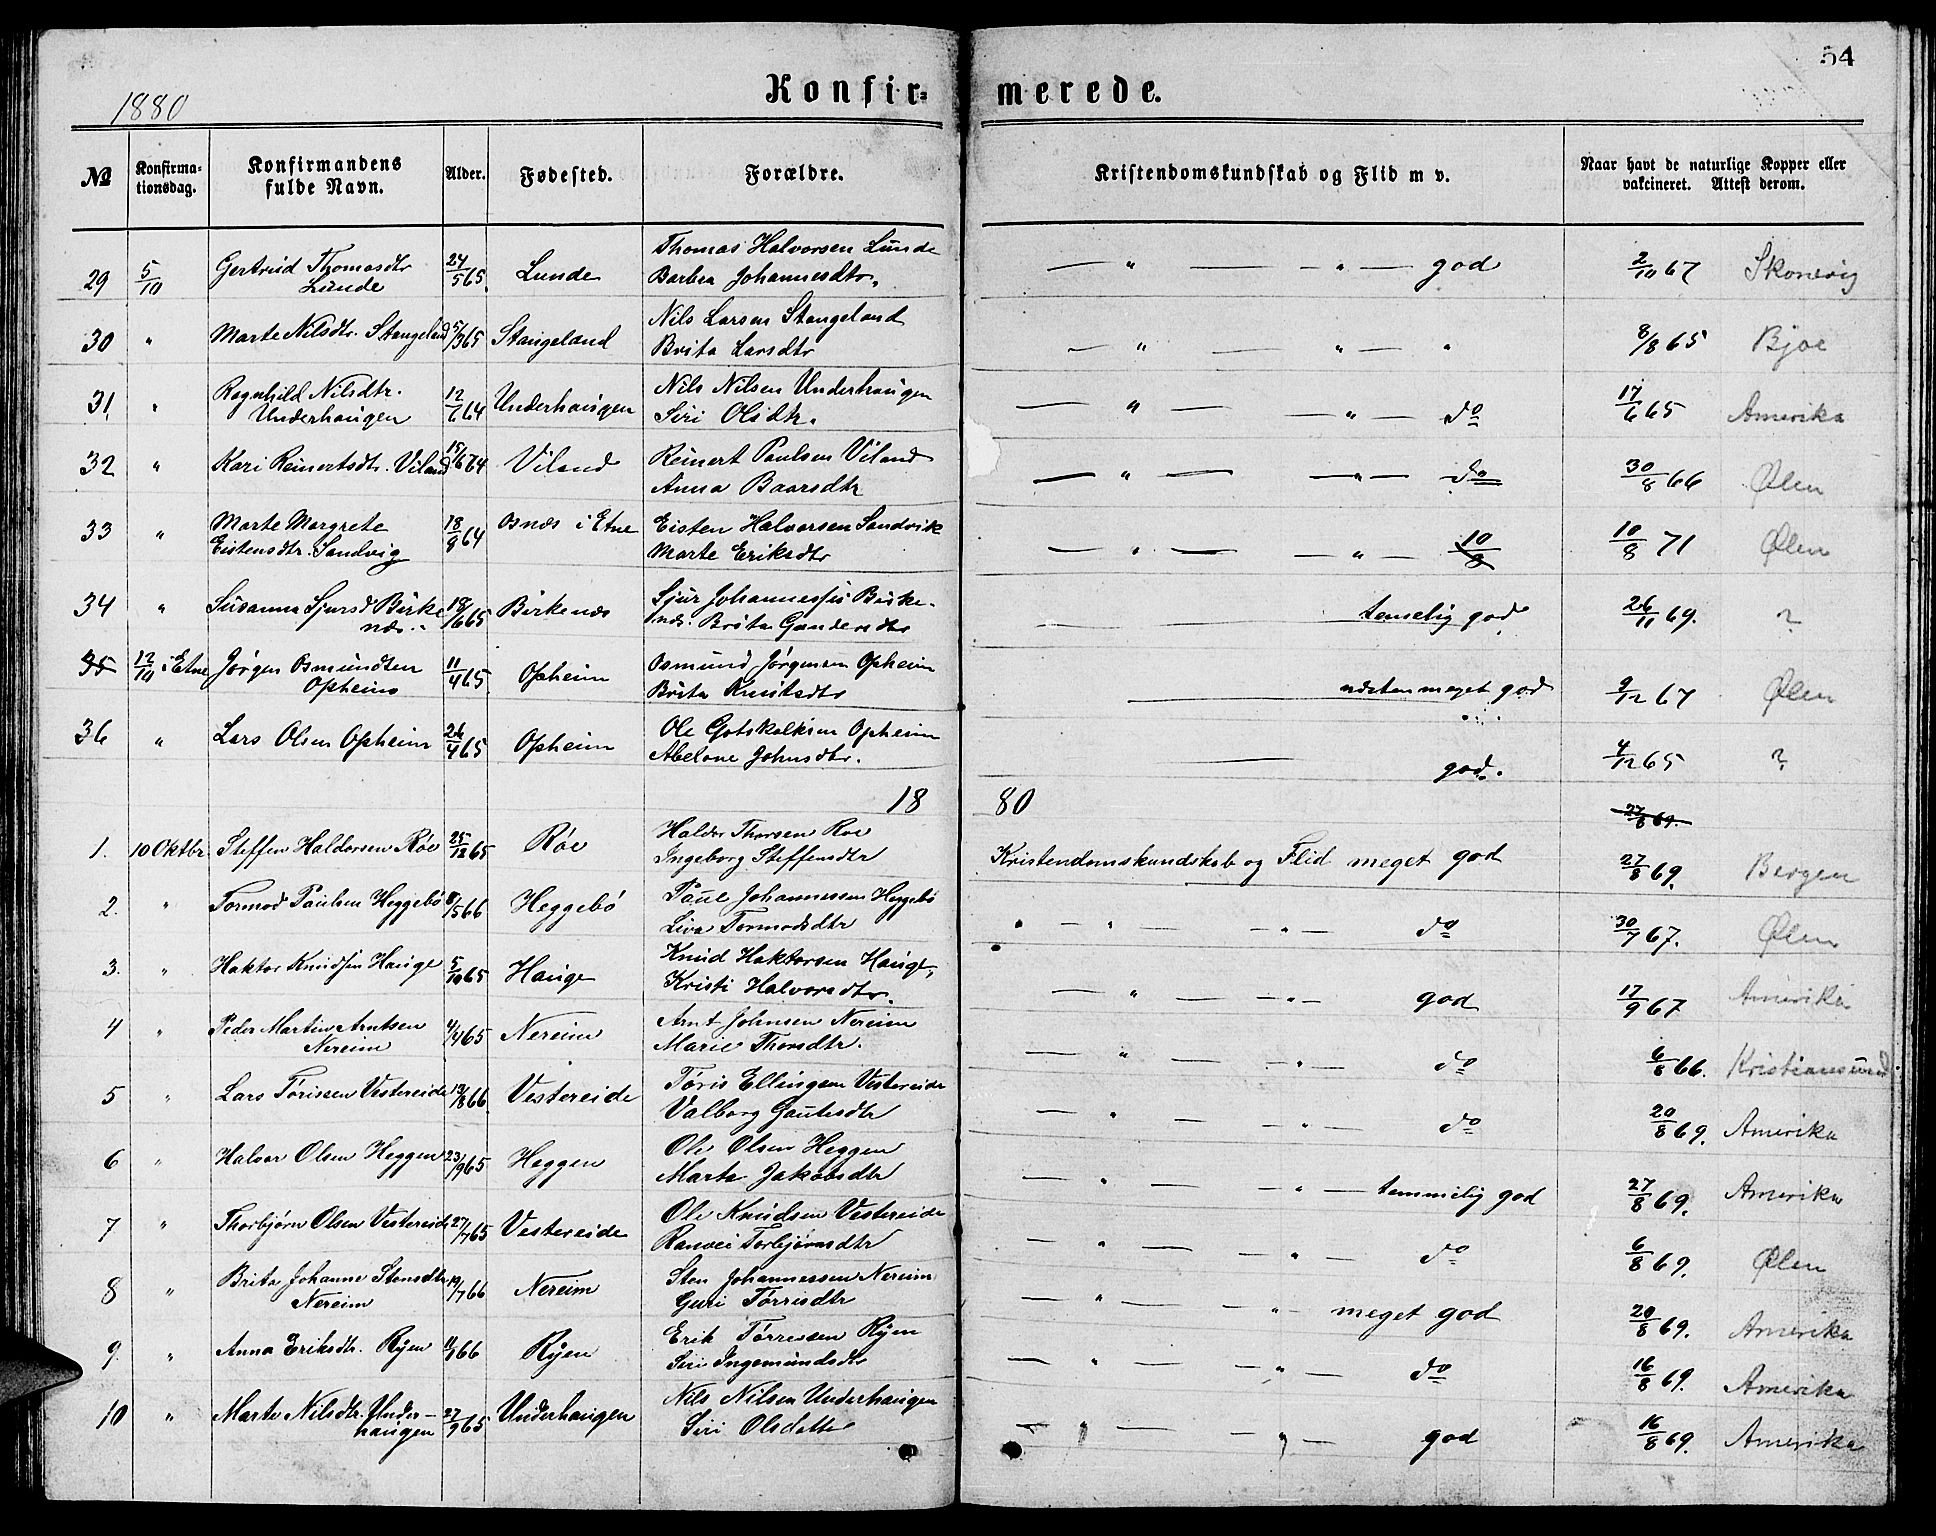 54
Konfirmerede.
1880
No Konfirmationsdag. Konfirmandens fulde Navn. Alder. Fødested. Forældre. Kristendomskundskab og Flid m v. Naar havt de naturlige Kopper eller vakcineret. Attest derom.
29 5/10 Gertrud Thomasdtr Lunde 24/5 65. Lunde Thomas Halvorsen Lunde Barbra Johannesdtr. — " — — " — god 2/10 67 Skonevig
30 " Marte Nilsdtr. Stangeland 5/3 65 Stangeland Nils Larsen Stangeland Brita Larsdtr — " — " — " 8/8 65 Bjoe
31. " Ragnhild Nilsdtr. Underhaugen 12/7 64 Underhaugen Nils Nilsen Underhaugen Siri Olsdtr. — " — — " — do 17/6 65 Amerika
32 " Kari Reinertsdtr. Viland 15/6 64 Viland Reinert Paulsen Viland Anna Baarsdtr — " — — " — do 30/8 66 Ølen
33 " Marte Margrete Eistensdtr. Sandvig 18/8 64 Osnæs i Etne Eisten Halvorsen Sandvik Marte Eriksdtr — " — — " — 10/8 10/8 71 Ølen
34 " Susanna Sjursd Birkenæs 18/6 65 Birkenæs Sjur Johannessen Birkenæs. Brita Gundersdtr temelig god 26/11 69. ?
35 12/10 i Etne Jørgen Osmundsen Opheim 11/4 65 Opheim Osmund Jørgensen Opheim Brita Knutsdtr næsten meget god 9/12 67 Ølen
36 " Lars Olsen Opheim 26/4 65 Opheim Ole Gotskalksen Opheim Abelone Johnsdtr. god. 4/12 65 ?
1880
27/8 69.
1. 10 Oktbr. Steffen Haldorsen Røe 25/12 65 Røe Haldor Thorsen Roe Ingeborg Steffensdtr Kristendomskundskab og Flid meget god 27/8 69. Bergen
2. " Tormod Paulsen Heggebø 8/5 66 Heggebø Paul Johannessen Heggebø Liva Tormodsdtr " — " — — " — do 30/7 67. Ølen
3. " Haktor Knudsen Hauge 5/10 65 Hauge Knud Haktorsen Hauge, Kristi Halvorsdtr. — " — — " — god 17/9 67 Amerika
4 " Peder Martin Arntsen Nereim 4/4 65 Nereim Arnt Johnsen Nereim Marie Thorsdtr. — " — — " — do 6/8 66. Kristiansund
5 " Lars Tørissen Vestereide 19/8 66 Vestereide Tøris Ellingsen Vestereide Valborg Gautesdtr — " — — " — do 20/8 69. Amerika
6 " Halvor Olsen Heggen 23/9 65 Heggen Ole Olsen Heggen Marta Jakobsdtr — " — — " — temmelig god 27/8 69. Amerika
7 " Thorbjørn Olsen Vestereide 27/7 65 Vestereide Ole Knudsen Vestereide Ranvei Torbjørnsdtr — " — — " — do 6/8 69. Ølen
8 " Brita Johanne Stensdtr Nereim 19/7 66 Nereim Sten Johannessen Nereim Guri Tørrisdtr — " — — " — meget god 20/8 69. Amerika
9. " Anna Eriksdtr. Rÿen 11/1 66 Rÿen Erik Tørressen Rÿen Siri Ingemundsdtr — " — — " — do 16/8 69. Amerika
10 " Marte Nilsdtr. Underhaugen 27/9 65 Underhaugen Nils Nilsen Underhaugen Siri Olsdatter — " — — " — god 16/8 69. Amerika